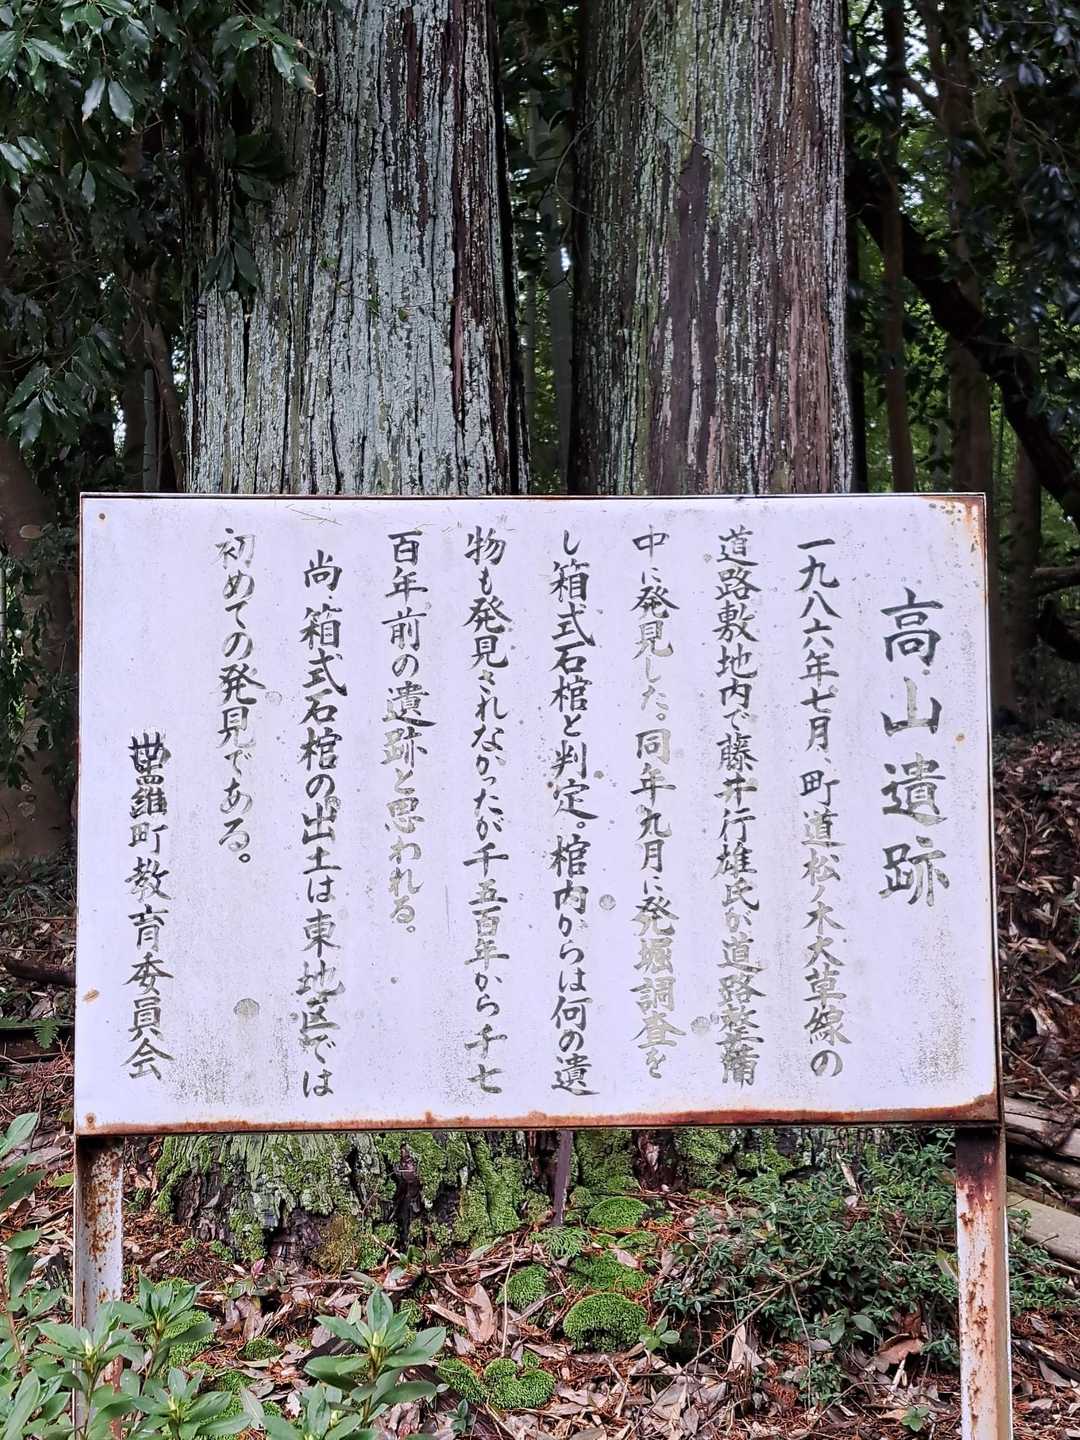 高山遺跡
一九八六年七月、町道松ノ木大草線の
道路敷地内で藤井行雄氏が道路整備
中に発見した。同年九月に発掘調査を
し箱式石棺と判定。棺内からは何の遺
物も発見されなかったが千五百年から千七
百年前の遺跡と思われる。
尚箱式石棺の出土は東地区では
初めての発見である。
町教育委員会